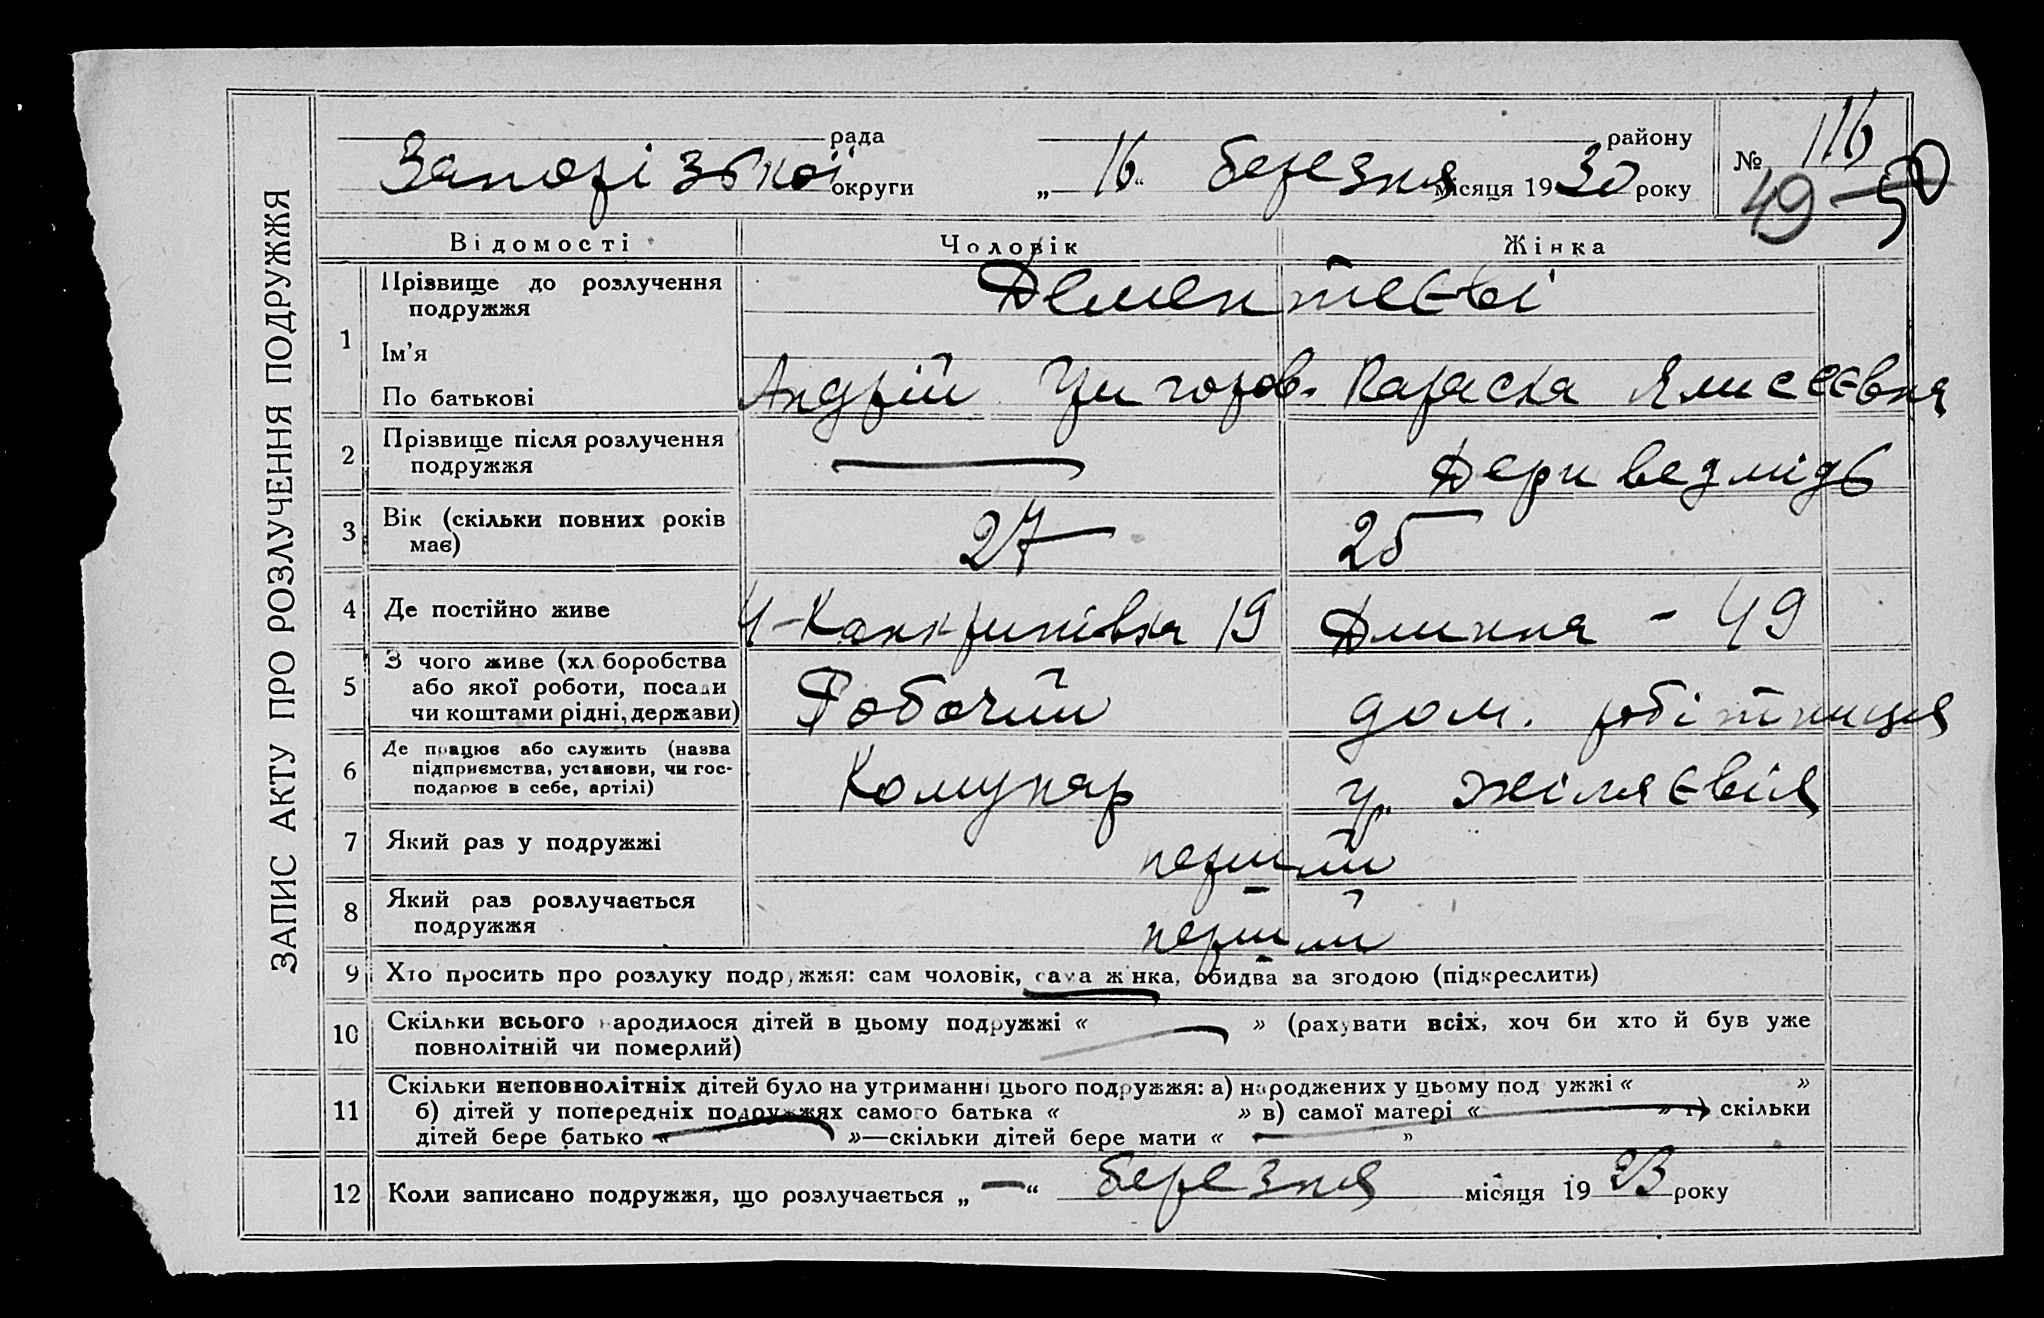 ЗАПИС АКТУ ПРО РОЗЛУЧЕННЯ ПОДРУЖЖЯ
рада
району
Запорізької округи
„ 16 “ березня місяця 1930 року
№ 116
49-50
Відомості
Чоловік
Жінка
1
Прізвище до розлучення
подружжя
Дементеєві
Ім’я
По батькові
Андрій Григоров.
Параска Ялисеєвна
2
Прізвище після розлучення
подружжя
—
Дериведмідь
3
Вік (скільки повних років
має)
27
25
4
Де постійно живе
Канкринівка 19
Длинна - 49
5
З чого живе (хл боробства
або якої роботи, посади
чи коштами рідні, держави)
Робочий
дом. робітниця
6
Де працює або служить (назва
підприємства, установи, чи гос-
подарює в себе, артілі)
Комунар
7
Який раз у подружжі
перший
8
Який раз розлучається
подружжя
перший
9
Хто просить про розлуку подружжя: сам чоловік, сама жінка, обидва за згодою (підкреслити)
10
Скільки всього народилося дітей в цьому подружжі « — » (рахувати всіх, хоч би хто й був уже
повнолітній чи померлий)
11
Скільки неповнолітніх дітей було на утриманні цього подружжя: а) народжених у цьому подружжі « »
б) дітей у попередніх подружжях самого батька « » в) самої матері « — » г) скільки
дітей бере батько « — »—скільки дітей бере мати « — »
12
Коли записано подружжя, що розлучається „ — “ березня місяця 1923 року